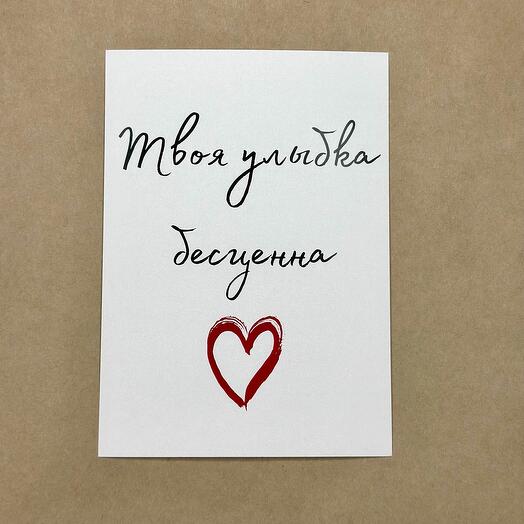 Твоя улыбка
бесценна